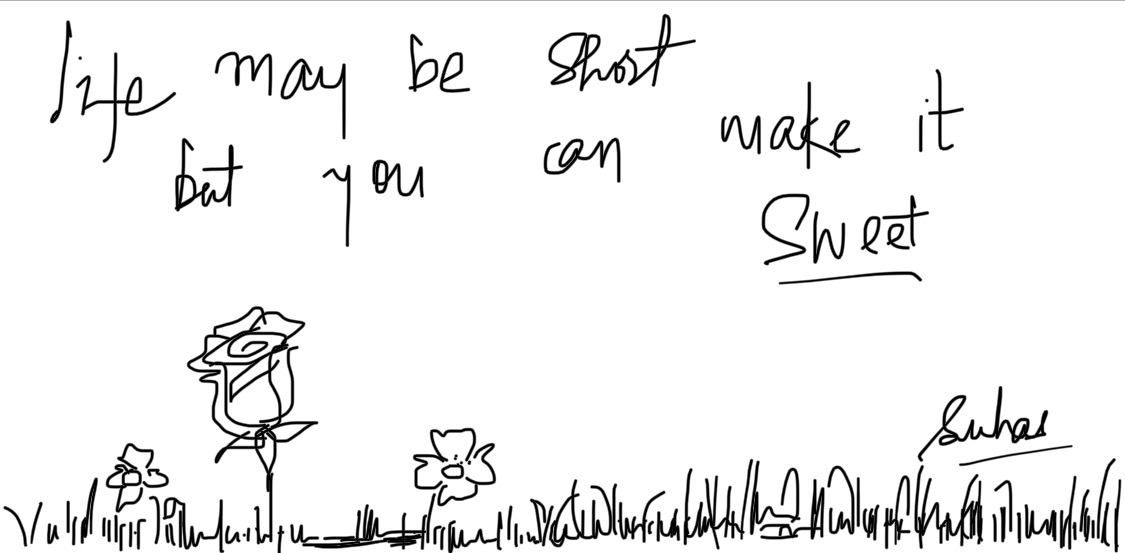 life may be short
but you can make it
Sweet
Suhas